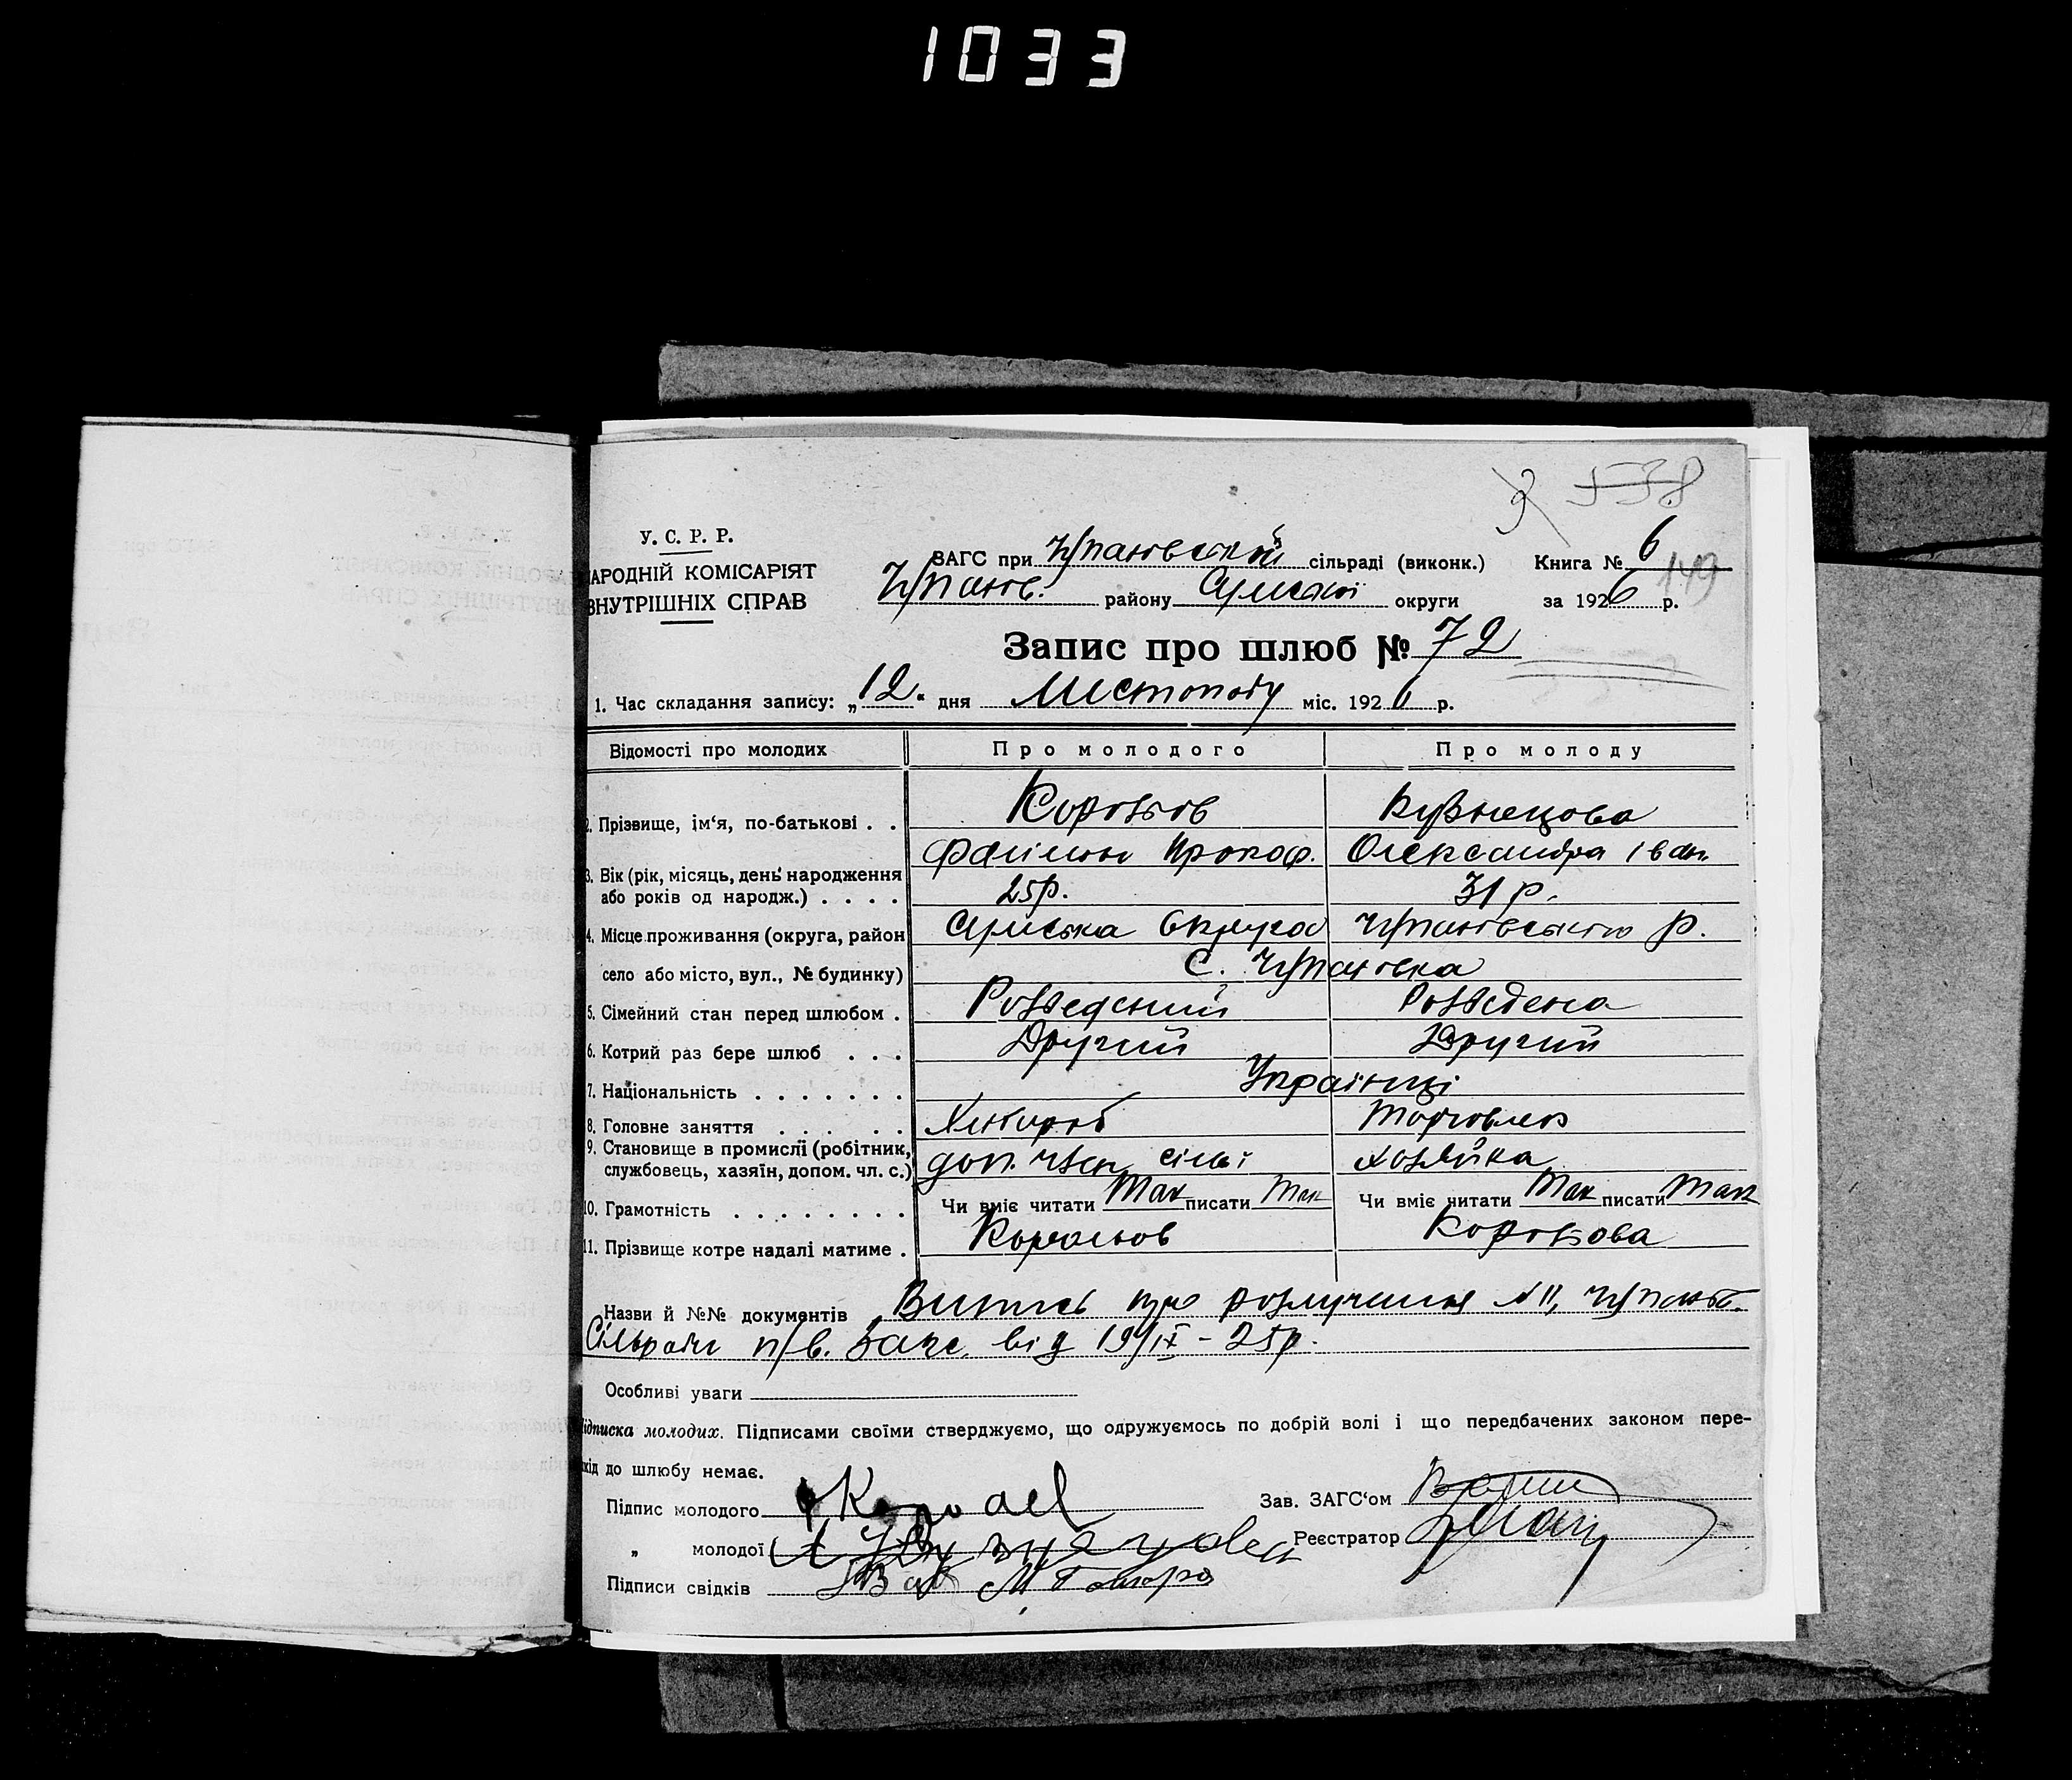 1033
538
У. С. Р. Р.
НАРОДНІЙ КОМІСАРІЯТ
ВНУТРІШНІХ СПРАВ
ЗАГС при сільраді (виконк.) Книга № 6
149
району Сумської округи за 1926 р.
Запис про шлюб № 72
1. Час складання запису: „12“ дня Листопаду міс. 1926 р.
Відомості про молодих Про молодого Про молоду
2. Прізвище, ім‘я, по-батькові . . Кузнецова
Прокоф. Олександра Іван.
3. Вік (рік, місяць, день народження
або років од народж.) . . . . 25р. 31 р.
4. Місце проживання (округа, район Сумська Округа р.
село або місто, вул., № будинку) с.
5. Сімейний стан перед шлюбом . Розведений Розведена
6. Котрий раз бере шлюб . . . Другий Другий
7. Національність . . . . . . . Українці
8. Головне заняття . . . . . Хлібороб Торговля
9. Становище в промислі (робітник,
службовець, хазяїн, допом. чл. с.) доп. член сімї хозяйка
10. Грамотність . . . . . . . . Чи вміє читати Так писати Так Чи вміє читати Так писати Так
11. Прізвище котре надалі матиме .
Назви й №№ документів Випись про розлучення N 11,
Сільради п/в. Загс. від 19/IX - 25р.
Особливі уваги
Підписка молодих. Підписами своїми стверджуємо, що одружуємось по добрій волі і що передбачених законом пере-
шкід до шлюбу немає.
Підпис молодого Зав. ЗАГС‘ом
„ молодої А Кузнецова Реєстратор
Підписи свідків